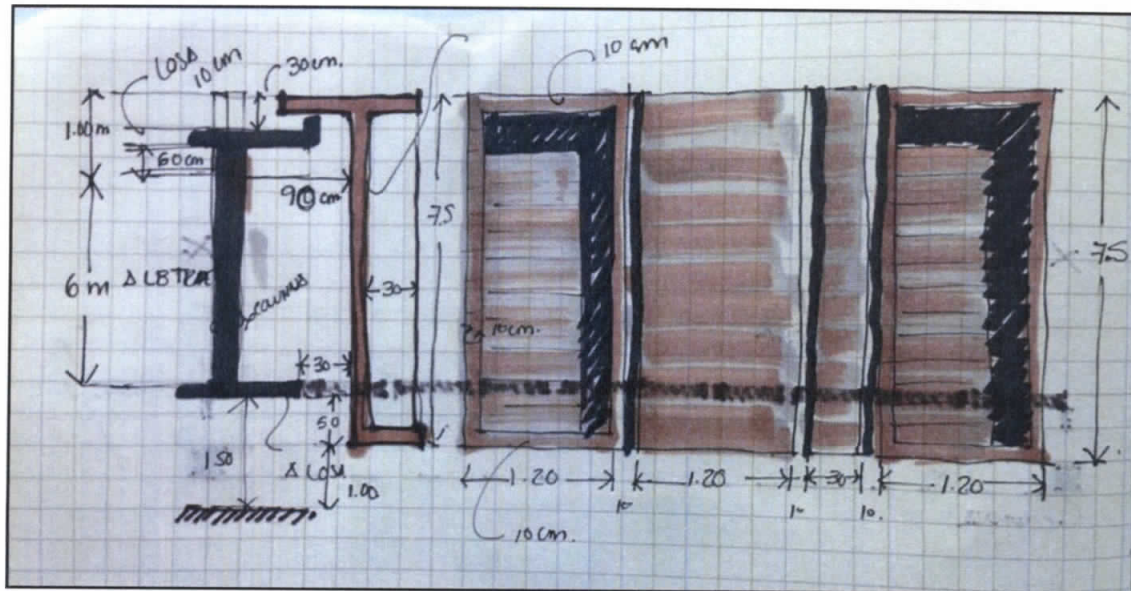 LOSA
10 cm
30 cm.
10 cm
1.00 m
60 cm
90 cm
7.5
7.5
6 m
30
10 cm.
30
50
1.50
A LOSA
1.00
1.20
10
1.20
10
30
10.
1.20
10 cm.